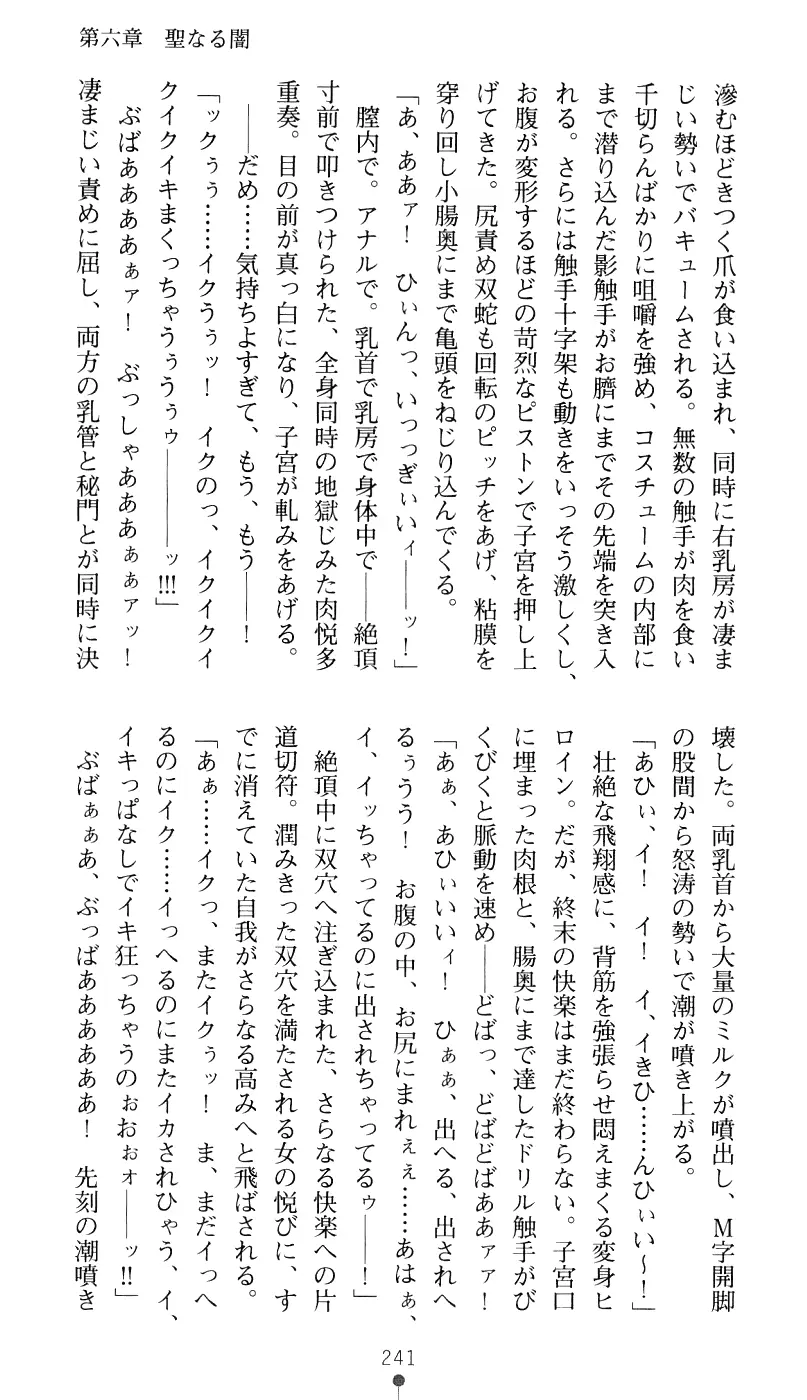 第六章　聖なる闇
滲むほどきつく爪が食い込まれ、同時に右乳房が凄ま
じい勢いでバキュームされる。無数の触手が肉を食い
千切らんばかりに咀嚼を強め、コスチュームの内部に
まで潜り込んだ影触手がお臍にまでその先端を突き入
れる。さらには触手十字架も動きをいっそう激しくし、
お腹が変形するほどの苛烈なピストンで子宮を押し上
げてきた。尻責め双蛇も回転のピッチをあげ、粘膜を
穿り回し小腸奥にまで亀頭をねじり込んでくる。
「あ、ああァ！　ひぃんっ、いっっぎぃいィ――ッ！」
　膣内で。アナルで。乳首で乳房で身体中で――絶頂
寸前で叩きつけられた、全身同時の地獄じみた肉悦多
重奏。目の前が真っ白になり、子宮が軋みをあげる。
　――だめ……気持ちよすぎて、もう、もう――！
「ックぅぅ……イクうぅッ！　イクのっ、イクイクイ
クイクイキまくっちゃうぅうぅゥ――――ッ!!!」
　ぶばああああぁァ！　ぶっしゃあああぁぁァッ！
凄まじい責めに屈し、両方の乳管と秘門とが同時に決
壊した。両乳首から大量のミルクが噴出し、Ｍ字開脚
の股間から怒涛の勢いで潮が噴き上がる。
「あひぃ、イ！　イ！　イ、イきひ……んひぃい～！」
　壮絶な飛翔感に、背筋を強張らせ悶えまくる変身ヒ
ロイン。だが、終末の快楽はまだ終わらない。子宮口
に埋まった肉根と、腸奥にまで達したドリル触手がび
くびくと脈動を速め――どばっ、どばどばああァァ！
「あぁ、あひぃいいィ！　ひぁぁ、出へる、出されへ
るぅうう！　お腹の中、お尻にまれぇぇ……あはぁ、
イ、イッちゃってるのに出されちゃってるゥ――！」
　絶頂中に双穴へ注ぎ込まれた、さらなる快楽への片
道切符。潤みきった双穴を満たされる女の悦びに、す
でに消えていた自我がさらなる高みへと飛ばされる。
「あぁ……イクっ、またイクぅッ！　ま、まだイっへ
るのにイク……イっへるのにまたイカされひゃう、イ、
イキっぱなしでイキ狂っちゃうのぉおぉォ――ッ!!」
　ぶばぁぁあ、ぶっばああああああ！　先刻の潮噴き
241